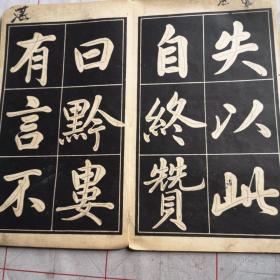 失以此
自終贊
曰黔婁
有言不